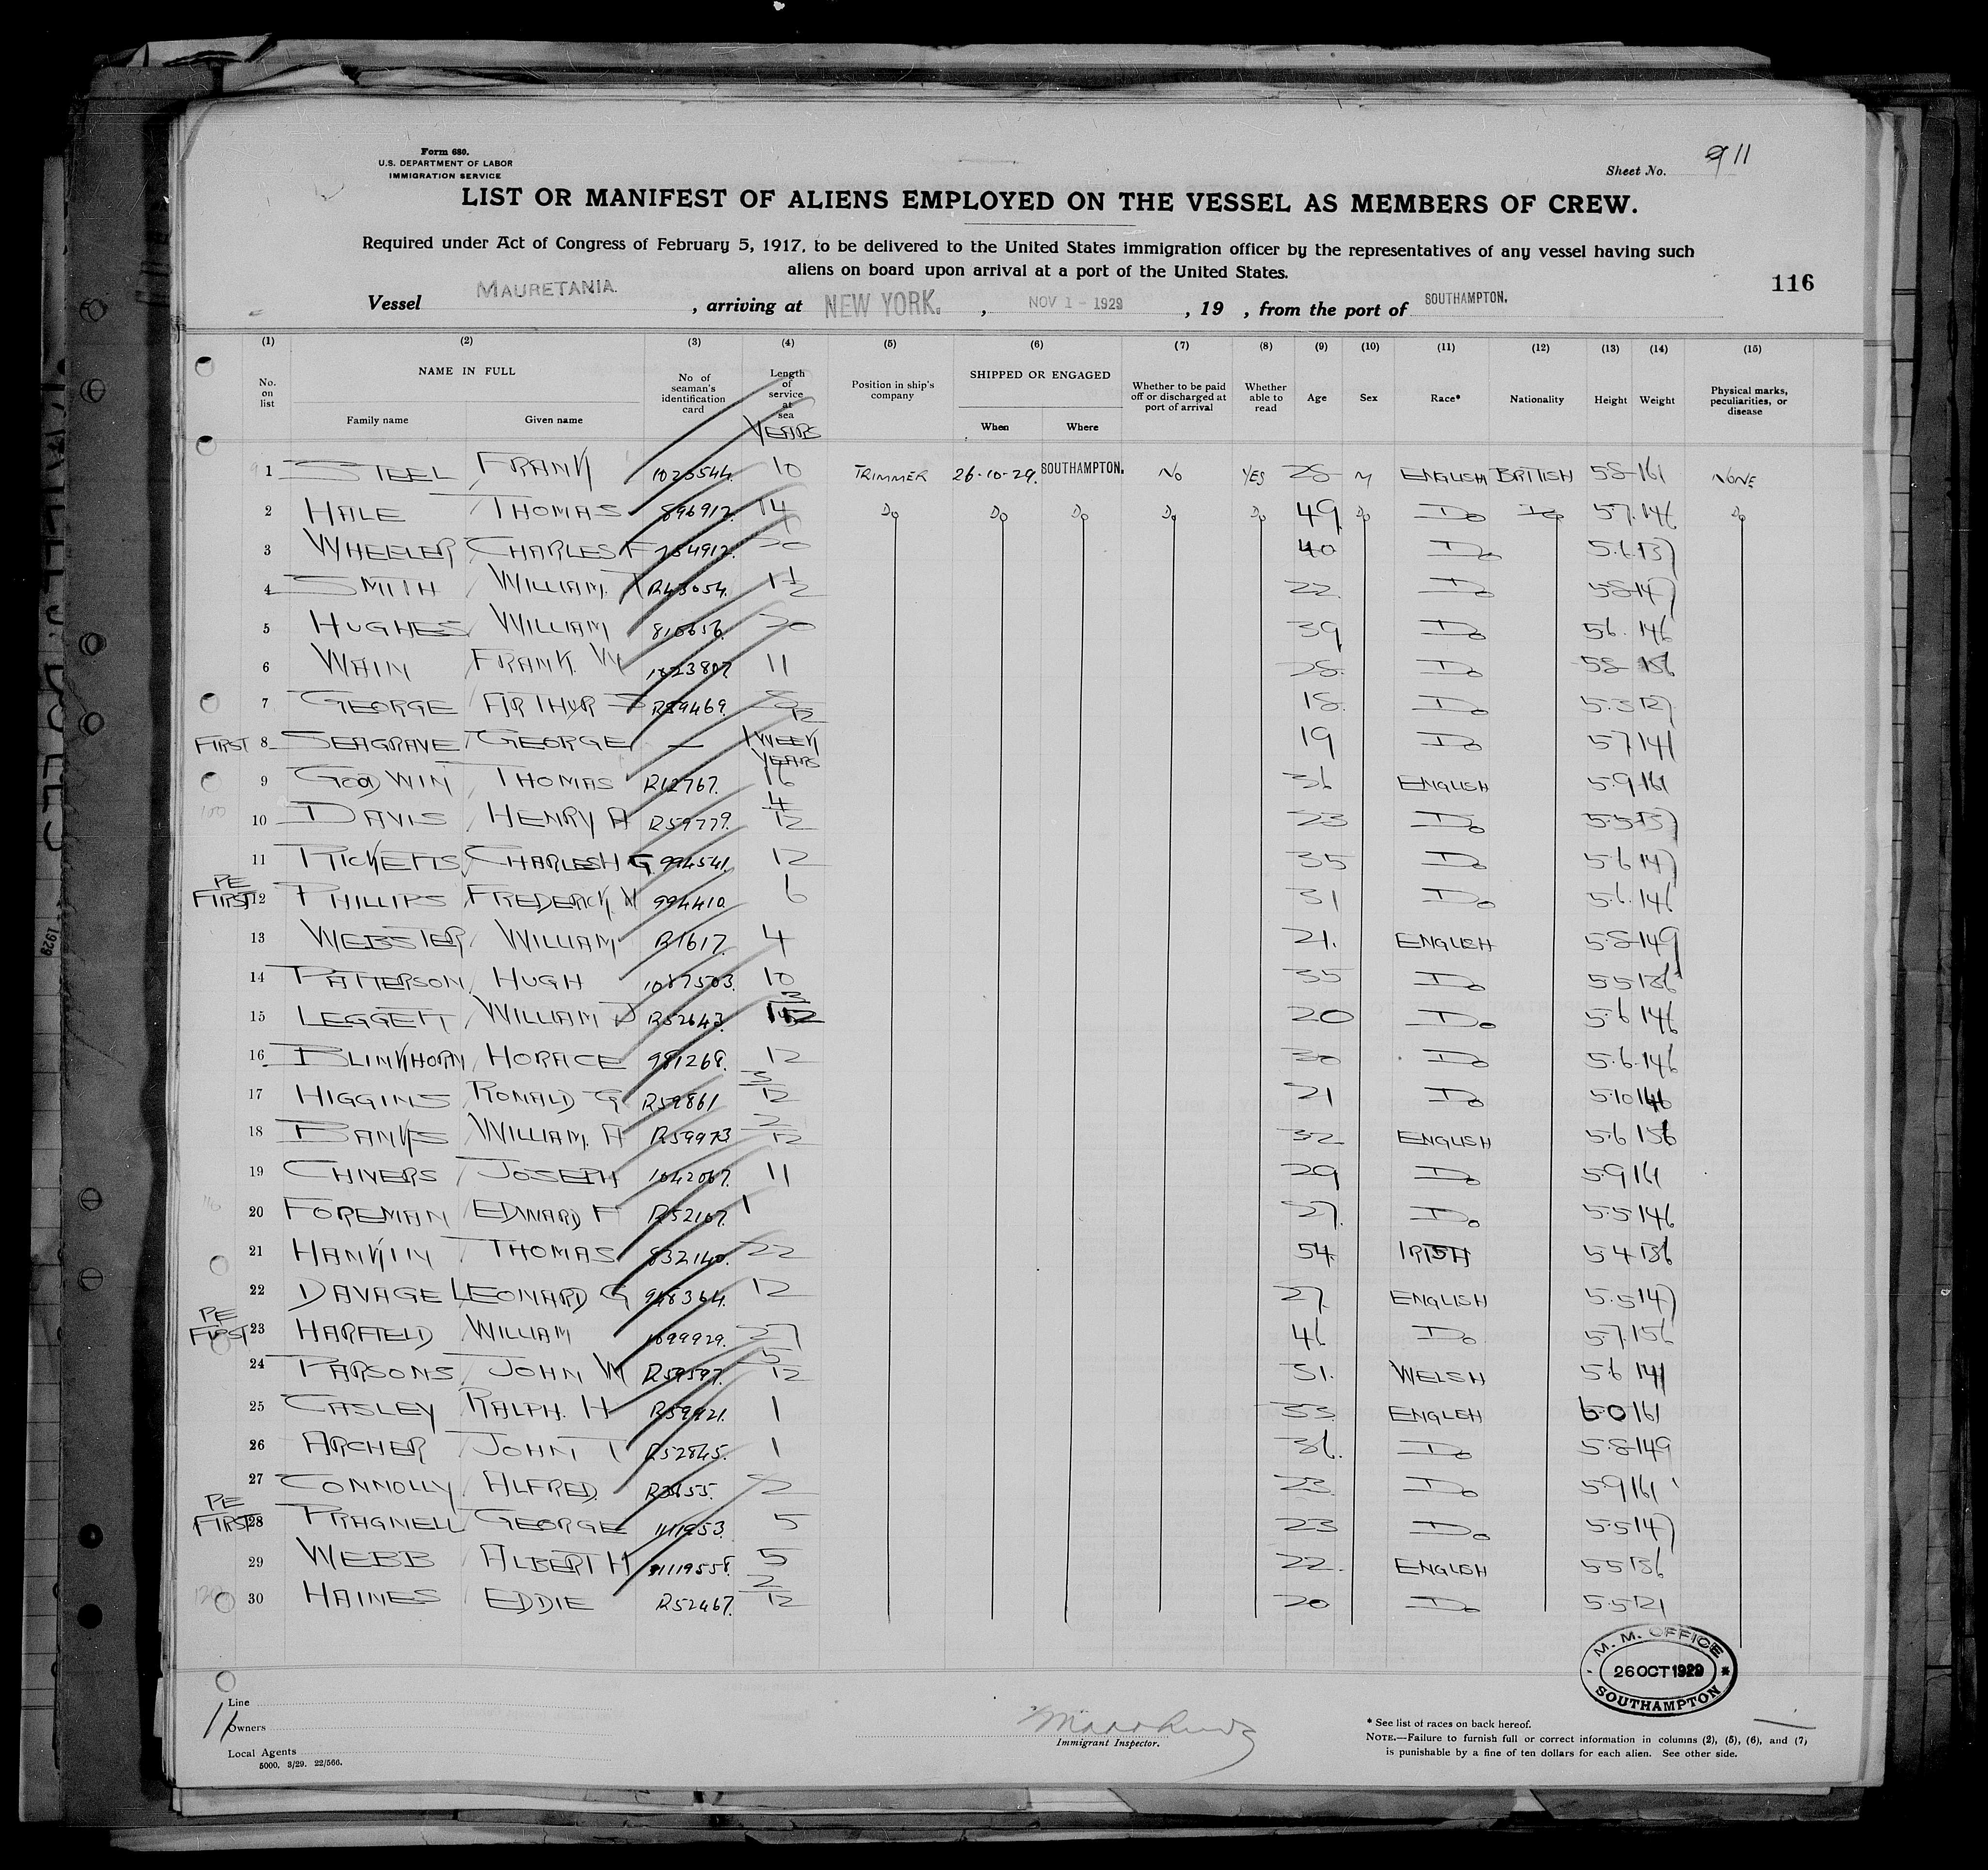 Form 680.
U.S. DEPARTMENT OF LABOR
IMMIGRATION SERVICE
Sheet No. 11
LIST OR MANIFEST OF ALIENS EMPLOYED ON THE VESSEL AS MEMBERS OF CREW.
Required under Act of Congress of February 5, 1917, to be delivered to the United States immigration officer by the representatives of any vessel having such
aliens on board upon arrival at a port of the United States.
116
Vessel MAURETANIA. , arriving at NEW YORK. , NOV 1 - 1929 , 19 , from the port of SOUTHAMPTON.
(1) (2) (3) (4) (5) (6) (7) (8) (9) (10) (11) (12) (13) (14) (15)
No. on list NAME IN FULL Family name Given name No of seaman's identification card Length of service at sea YEARS Position in ship's company SHIPPED OR ENGAGED When Where Whether to be paid off or discharged at port of arrival Whether able to read Age Sex Race* Nationality Height Weight Physical marks, peculiarities, or disease
1 STEEL FRANK 10 TRIMMER 26-10-29. SOUTHAMPTON. NO YES 28 M ENGLISH BRITISH 5 8 161 NONE
2 HALE THOMAS 896912. 14 Do Do Do Do Do 49 Do Do Do 5.7. 146 Do
3 WHEELER CHARLES F 20 40 Do 5.6.137
4 SMITH WILLIAM R43054. 1½ 22 Do 5 8 147
5 HUGHES WILLIAM 20 39 Do 5 6. 146
6 WAIN FRANK. W 11 28 Do 5 8 156
7 GEORGE ARTHUR R59469. 8/12 18. Do 5.3 127
FIRST 8 SEAGRAVE GEORGE — 1 WEEK 19 Do 5 7 141
9 GOODWIN THOMAS R12767. YEARS 16 36 ENGLISH 5.9 161
10 DAVIS HENRY A R59779. 4/12 23 Do 5.5 137
11 RICKETTS CHARLES H G 994541. 12 35 Do 5.6 147
PE FIRST 12 PHILLIPS FREDERICK W 994410 6 31 Do 5.6. 146
13 WEBSTER WILLIAM R1617. 4 21. ENGLISH 5.8 149
14 PATTERSON HUGH 1087503. 10 35 Do 5 5 136
15 LEGGETT WILLIAM J R52643. 20 Do 5.6 146
16 BLINKHORN HORACE 981268. 12 30 Do 5.6.146
17 HIGGINS RONALD G R59861 3/12 21 Do 5.10 146
18 BANKS WILLIAM. A R59973 2/12 32 ENGLISH 5.6 156
19 CHIVERS JOSEPH 1042067. 11 29 Do 5 9 161
20 FOREMAN EDWARD F R52107. 1 27. Do 5.5 146
21 HANKIN THOMAS 832140. 22 54. IRISH 5 4 136
22 DAVAGE LEONARD G 12 27. ENGLISH 5.5 147
PE FIRST 23 HARFIELD WILLIAM 1099929. 27 46 Do 5.7. 156
24 PARSONS JOHN W R59597. 5/12 51. WELSH 5.6 141
25 CASLEY RALPH. H R59921. 1 33. ENGLISH 6.0 161
26 ARCHER JOHN T R52845. 1 36. Do 5.8 149
27 CONNOLLY ALFRED. 2 23. Do 5 9 161
PE FIRST 28 PRAGNELL GEORGE 1111953. 5 23 Do 5.5 147
29 WEBB ALBERT H 5 22. ENGLISH 5 5 136
30 HAINES EDDIE R52467. 2/12 20 Do 5.5 121
M. M. OFFICE
26 OCT 1929
SOUTHAMPTON
Line
11
Owners
Local Agents
5000. 3/29. 22/566.
Immigrant Inspector.
* See list of races on back hereof.
NOTE.—Failure to furnish full or correct information in columns (2), (5), (6), and (7)
is punishable by a fine of ten dollars for each alien. See other side.